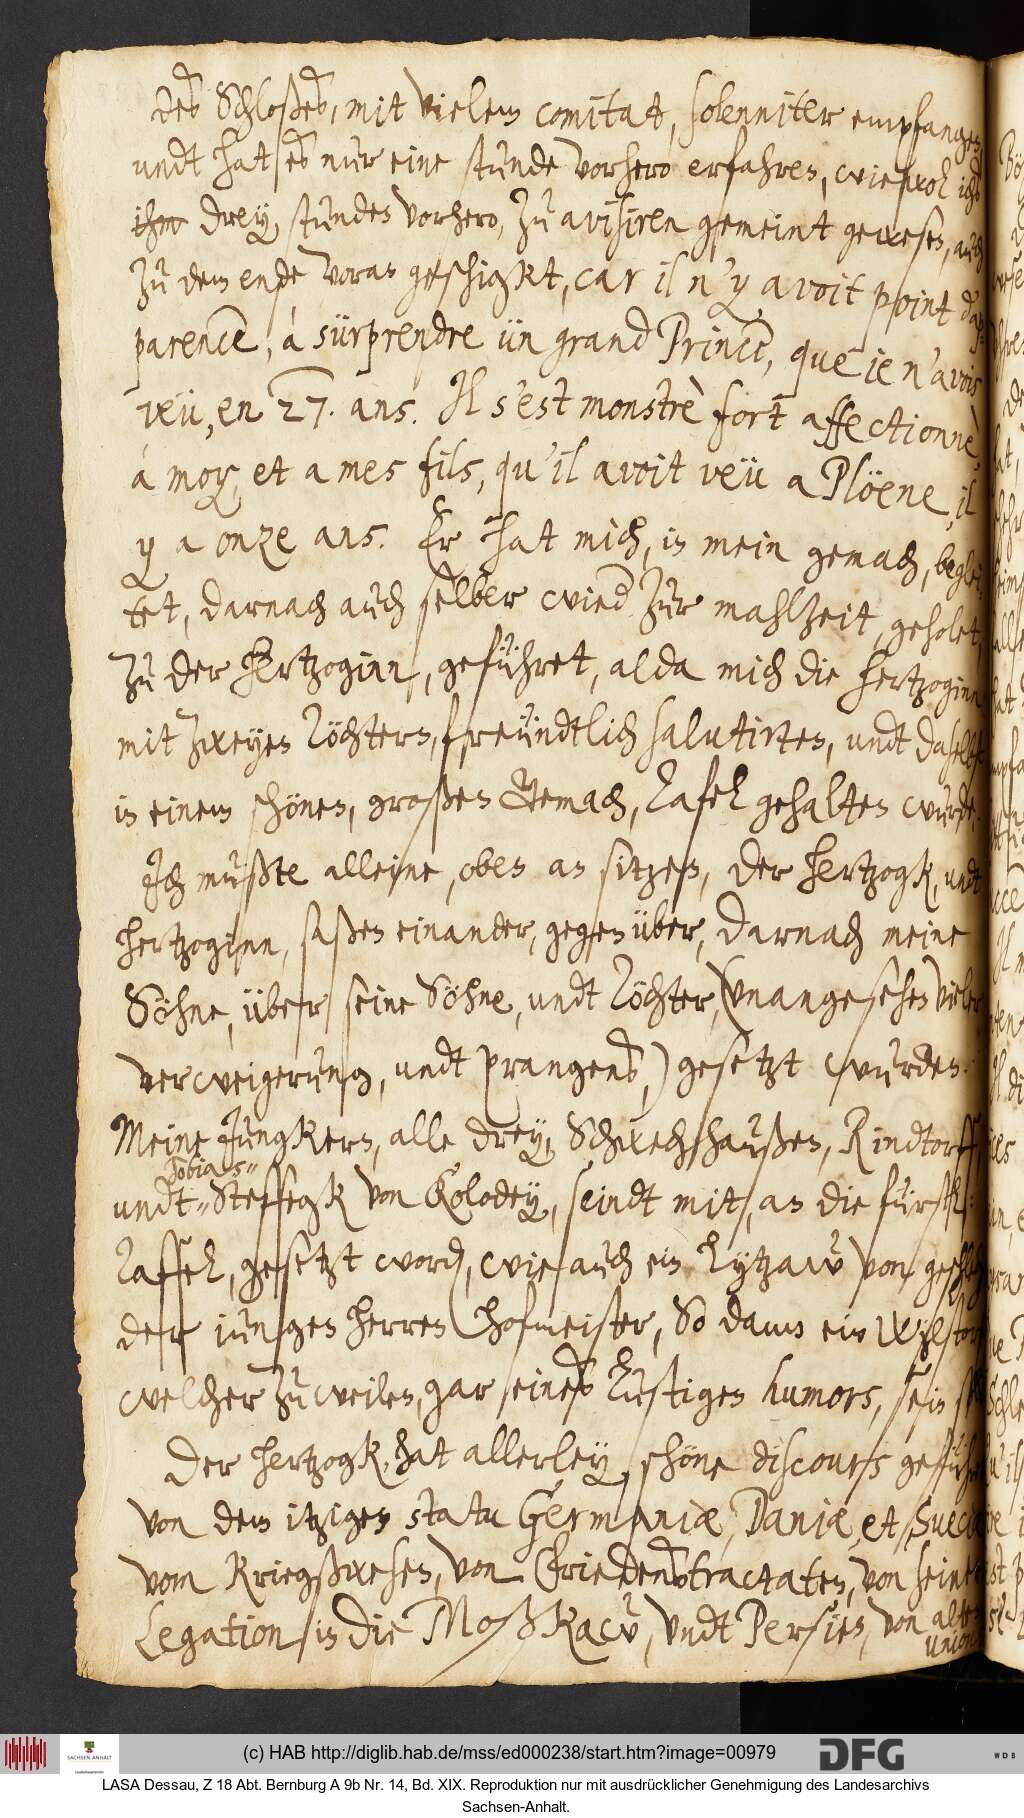 des Schloßes, mit vielem comitat, solenniter empfangen,
undt hat es nur eine stunde vorhero erfahren, wiewol ichs
ihm drey stunden vorhero, zu avisiren gemeint gewesen, auch
zu dem ende voran geschigkt, car il n'y avoit point d'ap=
parence, á sürprendre ün grand Prince, que ie n'avois
veü, en 27. ans. Il s'est monstrè fort affectionnè,
á moy, et a mes fils, qu'il avoit veü a Plöene, il
y a onze ans. Er hat mich, in mein gemach, beglei-
tet, darnach auch selber wied zur mahlzeit, geholet,
zu der Hertzoginn, geführet, alda mich die Hertzoginn
mit zweyen Töchtern, freündtlich salutirten, undt daselbst
in einem schönen, großen Gemach, Tafel gehalten wurde.
Ich mußte alleine, oben an sitzen, der Hertzogk, undt
Hertzoginn, saßen einander, gegen über, darnach meine
Söhne, über seine Söhne, undt Töchter, (unangesehen vieler
verweigerung, undt prangens,) gesetzt wurden.
Meine Jungkern, alle drey, Schwechhaußen, Rindtorff
Tobias
undt Steffegk von Kolodey, seindt mit, an die fürstl:
Taffel, gesetzt word, wie auch ein Lytzaw von geschl
der iungen herren hofmeister, So dann ein Wilstor
welcher zuweilen, gar seines lustigen humors, sein
Der Hertzogk, hat allerley, schöne discourss geführ
von dem itzigen statu Germaniæ, Daniæ, et Sueciæ
vom Kriegßwesen, von Friedenstractaten, von seiner
Legation in die Moßkaw, undt Persien, von alten
union
(c) HAB http://diglib.hab.de/mss/ed000238/start.htm?image=00979
SACHSEN-ANHALT
DFG
WDB
LASA Dessau, Z 18 Abt. Bernburg A 9b Nr. 14, Bd. XIX. Reproduktion nur mit ausdrücklicher Genehmigung des Landesarchivs
Sachsen-Anhalt.